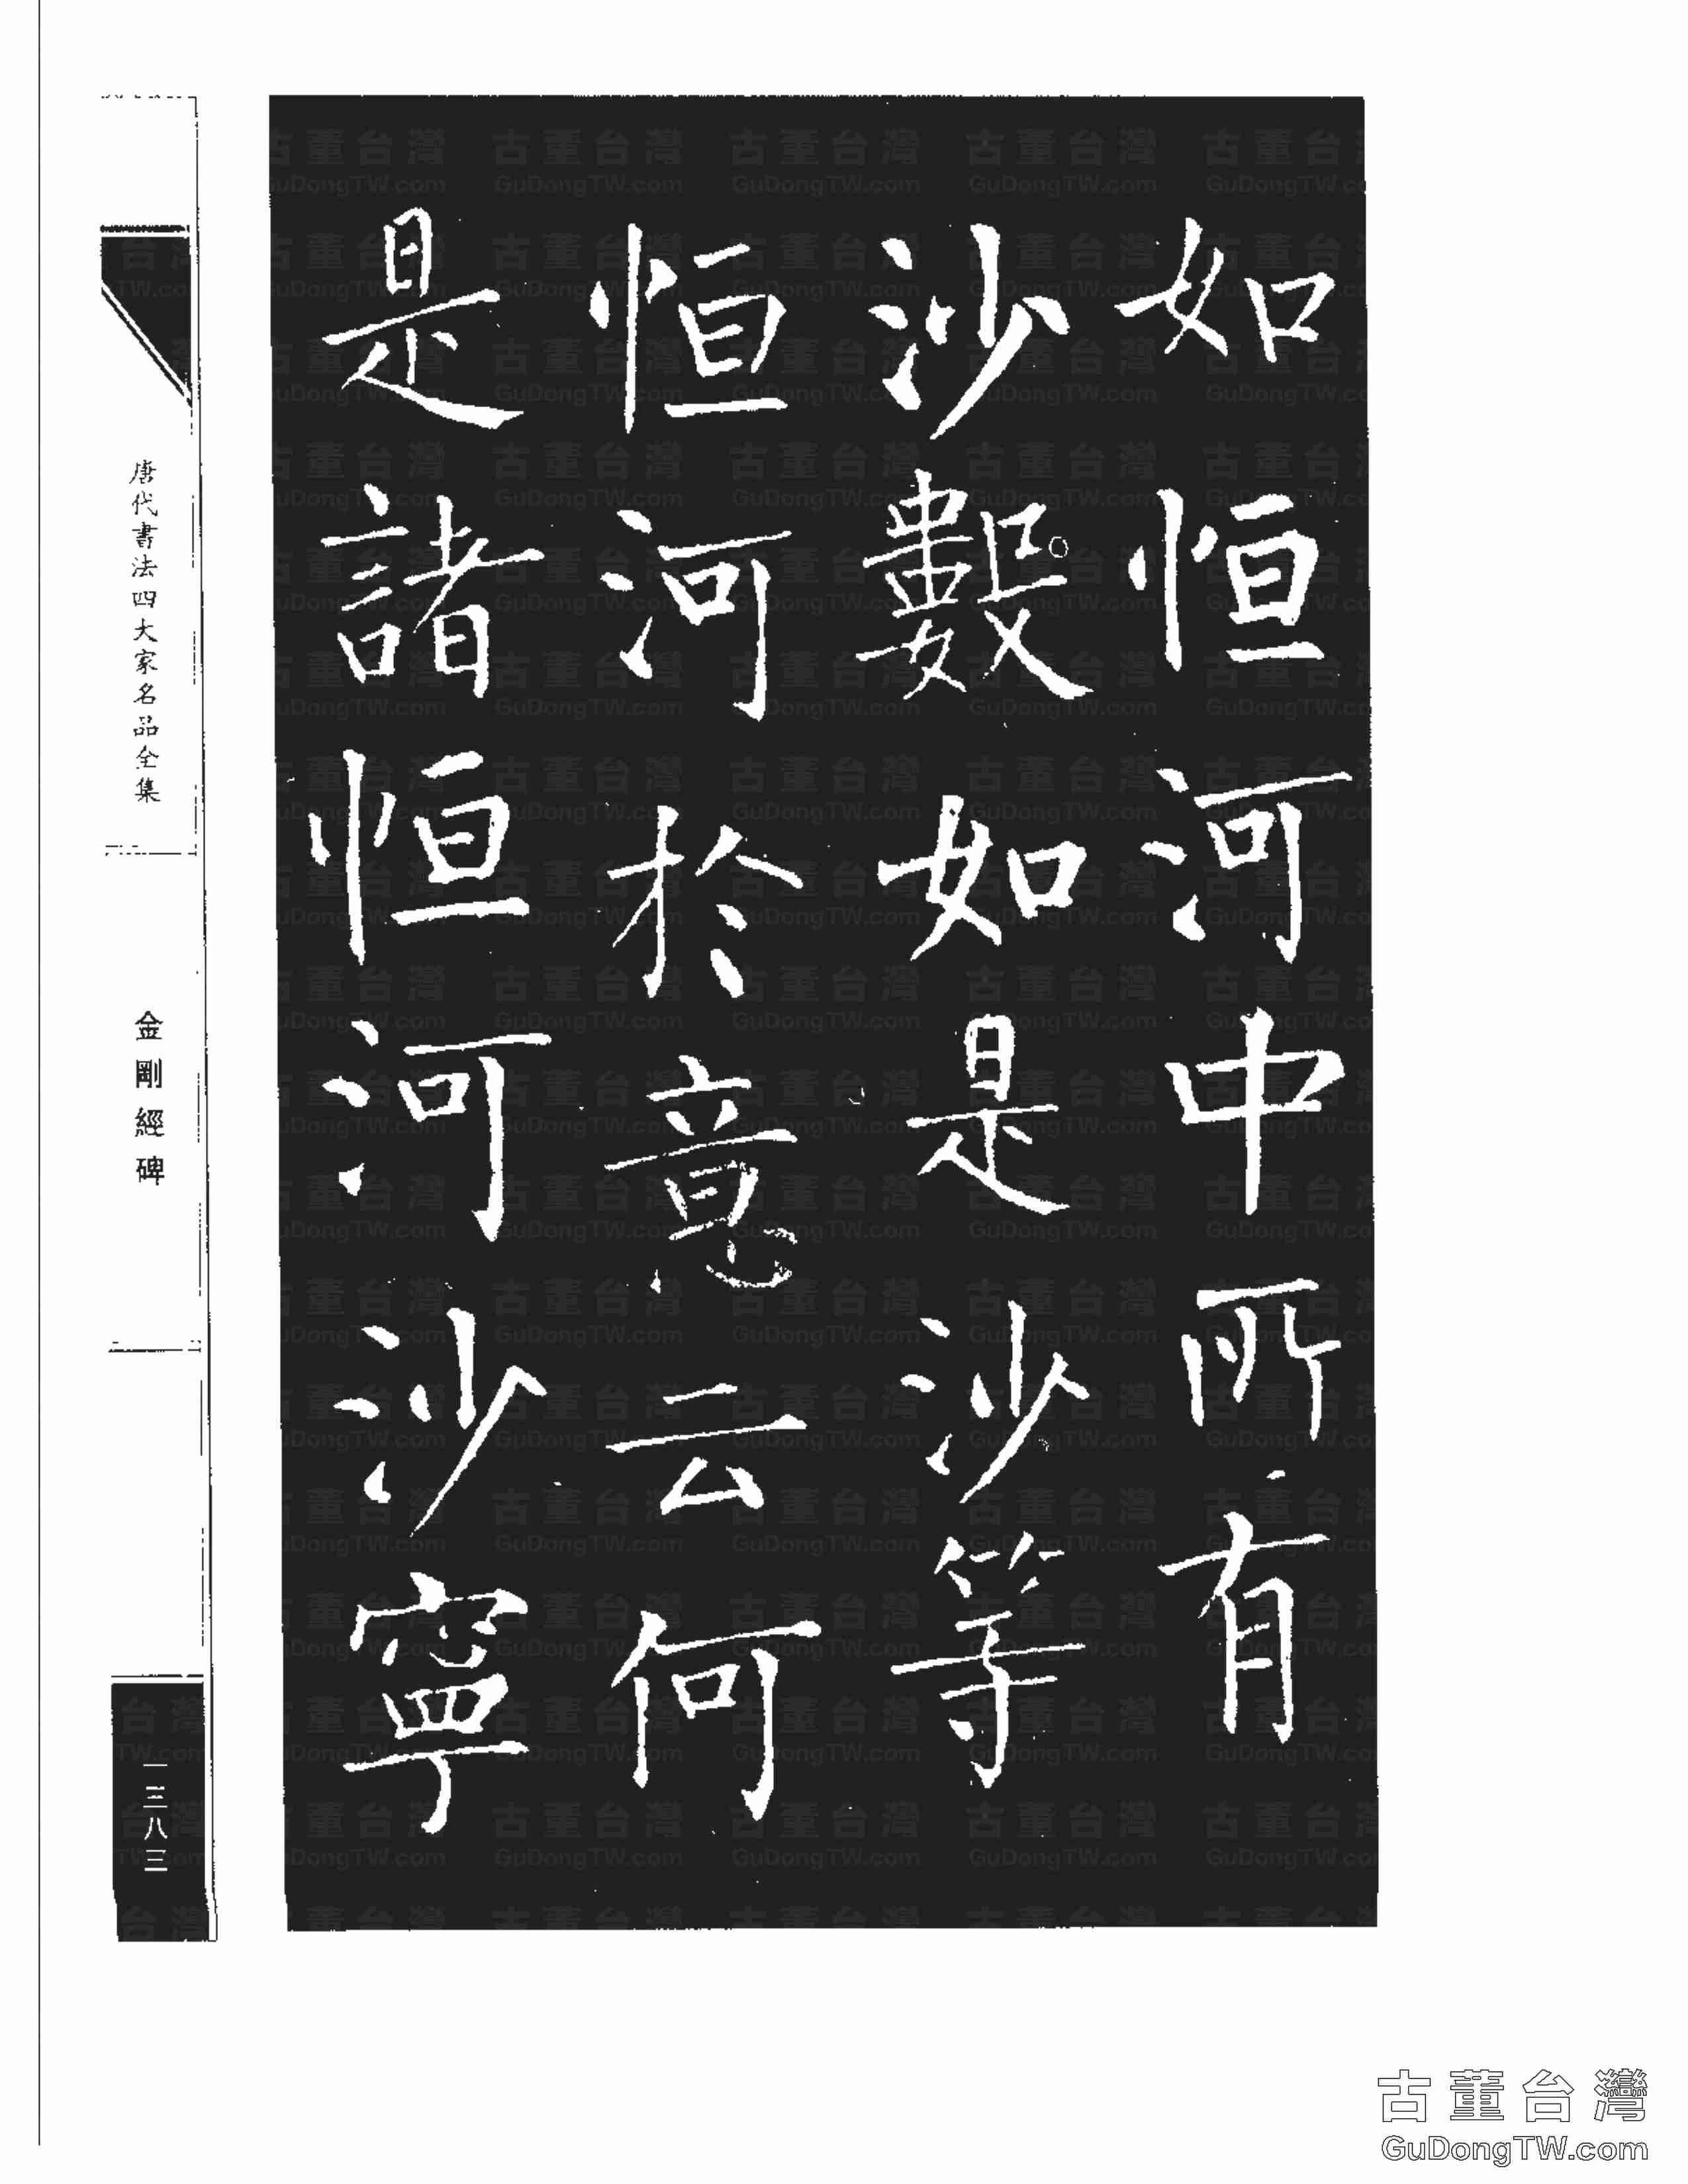 如恒河中所有
沙數如是沙等
恒河於意云何
是諸恒河沙寧
唐代書法四大家名品全集
金剛經碑
一三八三
古董台灣
GuDongTW.com